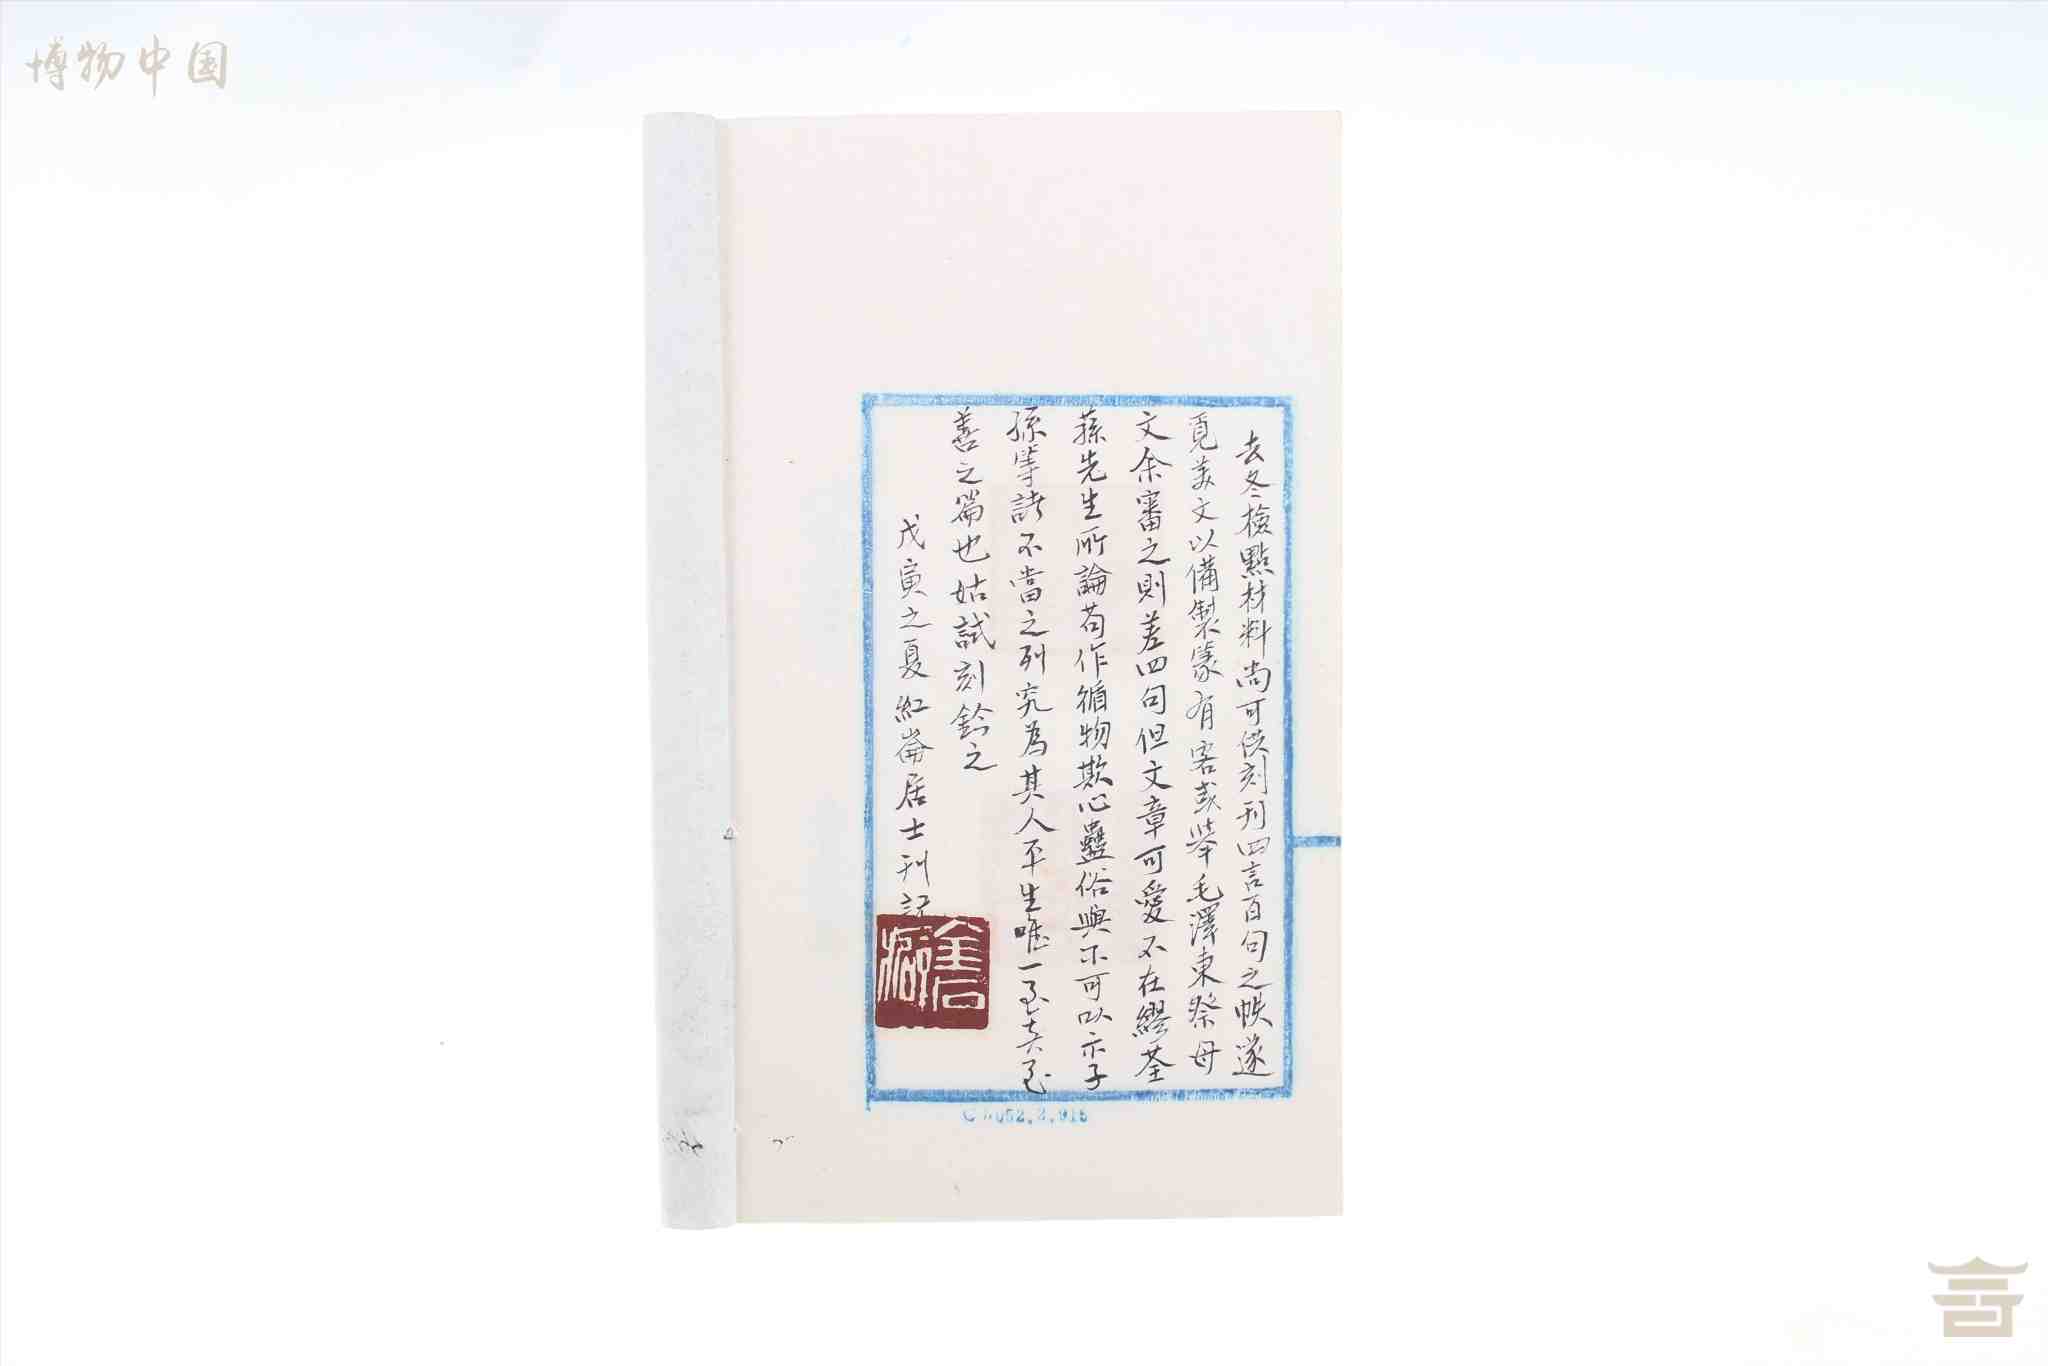 博物中国
去冬檢點材料尚可供刻刊四言百句之帙遂
覓美文以備製篆有客或举毛澤東祭母
文余審之則差四句但文章可愛不在繆荃
蓀先生所論苟作循物欺心蠱俗與不可以示子
孫等諸不當之列究為其人平生唯一至真至
善之篇也姑試刻鈐之
戊寅之夏紅崙居士刊記